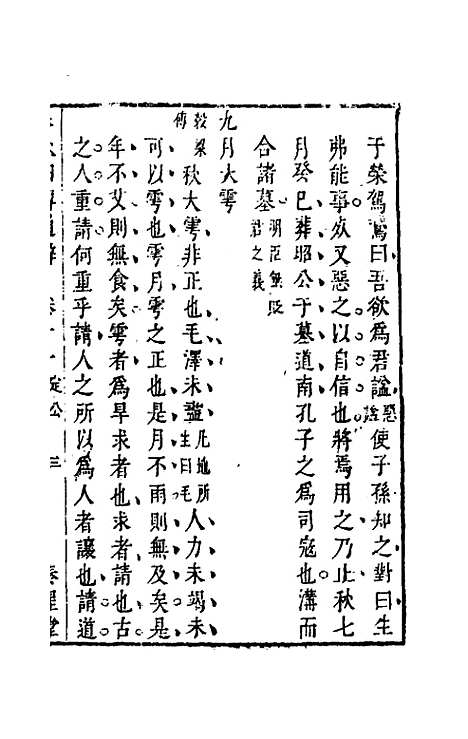 于榮駕鵞曰吾欲爲君諡惡諡使子孫知之對曰生
弗能事𣦸又惡之以自信也將焉用之乃止秋七
月癸巳葬昭公于墓道南孔子之爲司寇也溝而
合諸墓明臣無貶君之義
九月大雩
穀梁傳秋大雩非正也毛澤未盡凡地所生曰毛人力未竭未
可以雩也雩月雩之正也是月不雨則無及矣是
年不艾則無食矣雩者爲旱求者也求者請也古
之人重請何重乎請人之所以爲人者讓也請道
卷十一 定公 三